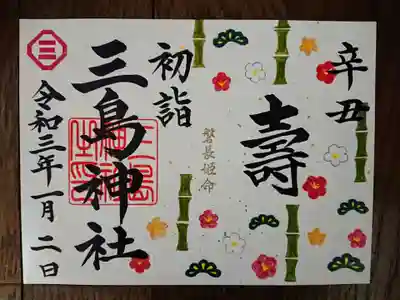 辛丑
壽
磐長姫命
初詣
三島神社
三
令和三年一月二日